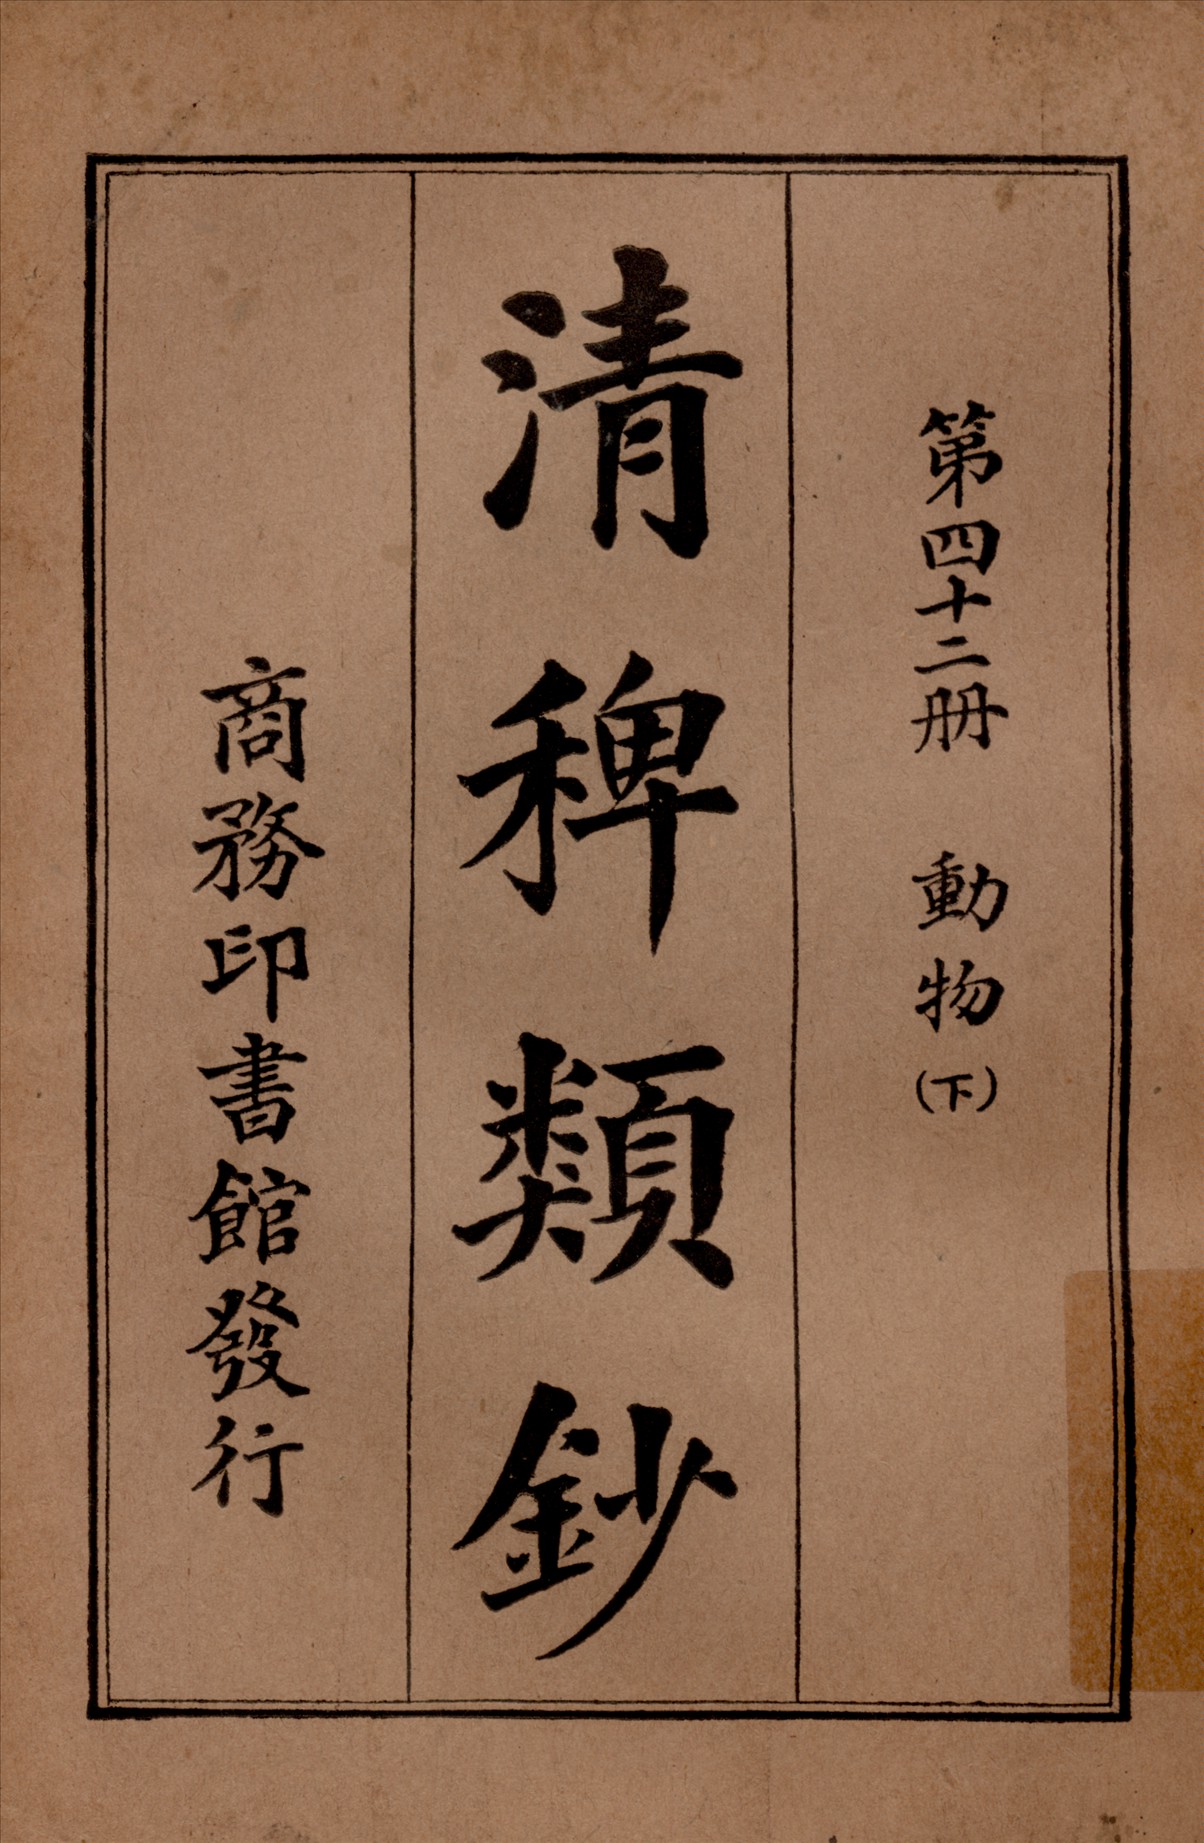 第四十二册　動物（下）
清稗類鈔
商務印書館發行